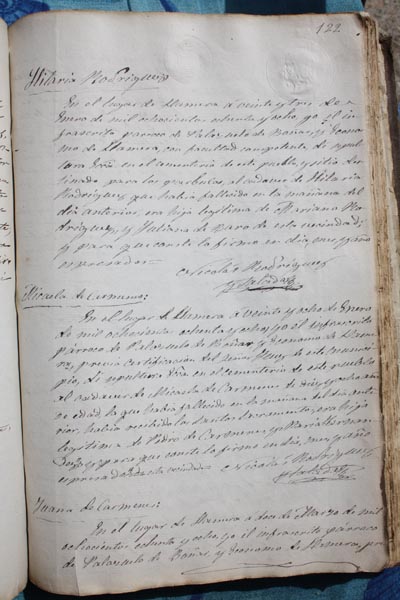 122
Hilaria Rodriguez
En el lugar de Llamera á veinte y tres de
Enero de mil ochocientos ochenta y ocho, yo el in-
frascrito párroco de Palazuelo de Boñar, y Ecóno-
mo de Llamera, con facultad competente di sepul-
tura en el cementerio de este pueblo, y sitio des-
tinado para los párbulos, al cadaver de Hilaria
Rodriguez que había fallecido en la mañana del
día anterior, era hija legítima de Mariano Ro-
driguez, y Juliana de esta vecindad;
y para que conste la firmo en dia, mes y año
espresados=
Nicolás Rodriguez
Micaela de Carmenes:
En el lugar de Llamera á veinte y ocho de Enero
de mil ochocientos ochenta y ocho, yo el infrascrito
párroco de Palazuelo de Boñar y Ecónomo de Llame-
ra, previa certificación del Juez de este
pio, di sepultura en el cementerio de este pueblo
al cadaver de Micaela de Carmenes de
de edad la que había fallecido en la mañana del dia ante-
rior, había recibido los Santos Sacramentos, era hija
legítima de Pedro de Carmenes, y María
y para que conste la firmo en dia, mes y año
espresados Nicolás Rodriguez
Juana de Carmenes:
En el lugar de Llamera á dos de Marzo de mil
ochocientos ochenta y ocho, yo el infrascrito párroco
de Palazuelo de Boñar, y Ecónomo de Llamera,